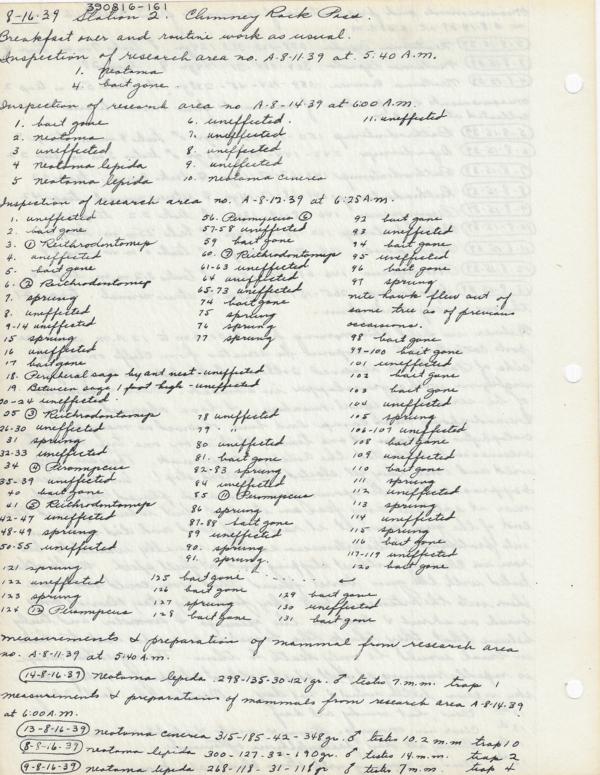 390816-161
8-16-39 Station 2. Chimney Rock Pass.
Breakfast over and routine work as usual.
Inspection of research area no. A-8-11-39 at 5:40 A.M.
1. neotoma
4. bait gone
Inspection of research area no A-8-14-39 at 6:00 A.M.
1. bait gone 6. uneffected. 11. uneffected
2. neotoma 7. uneffected
3 uneffected 8. uneffected
4 neotoma lepida 9. uneffected
5 neotoma lepida 10. neotoma cinerea
Inspection of research area no. A-8-12-39 at 6:25 A.M.
1. uneffected 56. Peromyscus 6 92 bait gone
2. bait gone 57-58 uneffected 93 uneffected
3. 1 Reithrodontomys 59 bait gone 94 bait gone
4. uneffected 60. 7 Reithrodontomys 95 uneffected
5. bait gone 61-63 uneffected 96 bait gone
6. 2 Reithrodontomys 64 uneffected 97 sprung
7. sprung 65-73 uneffected nite hawk flew out of
8. uneffected 74 bait gone same tree as of previous
9-14 uneffected 75 sprung occasions.
15 sprung 76 sprung 98 bait gone
16 uneffected 77 sprung 99-100 bait gone
17 bait gone 101 uneffected
18. Peripheral sage by ant nest - uneffected 102 bait gone
19. Between sage 1 foot high - uneffected 103 bait gone
20-24 uneffected. 104 uneffected
25 3 Reithrodontomys 78 uneffected 105 sprung
26-30 uneffected 79 " 106-107 uneffected
31 sprung 80 uneffected 108 bait gone
32-33 uneffected 81. bait gone 109 uneffected
34 4 Peromyscus 82-83 sprung 110 bait gone
35-39 uneffected 84 uneffected 111 sprung
40 bait gone 85 11 Peromyscus 112 uneffected
41 5 Reithrodontomys 86 sprung 113 sprung
42-47 uneffected 87-88 bait gone 114 uneffected
48-49 sprung 89 uneffected 115 sprung
50-55 uneffected 90. sprung 116 bait gone
91. sprung. 117-119 uneffected
121 sprung 120 bait gone
122 uneffected 125 bait gone
123 sprung 126 bait gone 129 bait gone
124 12 Peromyscus 127 sprung 130 uneffected
128 bait gone 131 bait gone
Measurements & preparation of mammal from research area
no. A-8-11-39 at 5:40 A.M.
14-8-16-39 neotoma lepida 298-135-30-121 gr. ♂ testes 7 m.m. trap 1
Measurements & preparations of mammals from research area A-8-14-39
at 6:00 A.M.
13-8-16-39 neotoma cinerea 315-185-42-348 gr. ♂ testes 10.2 m.m trap 10
8-8-16-39 neotoma lepida 300-127-32-190 gr. ♂ testes 14 m.m. trap 2
9-8-16-39 neotoma lepida 268-118-31-118 gr ♂ testes 7 m.m. trap 4